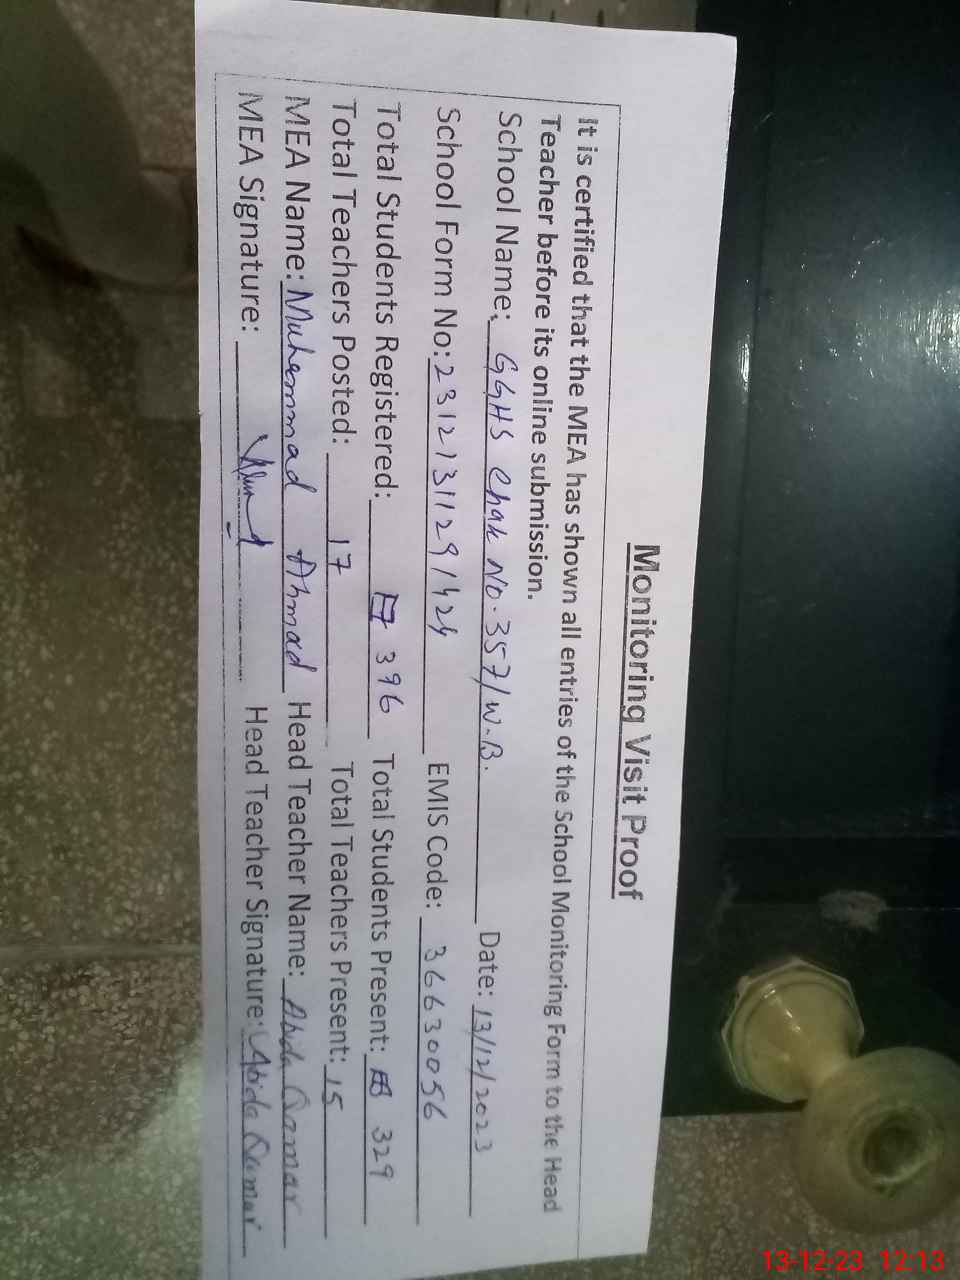 Monitoring Visit Proof
It is certified that the MEA has shown all entries of the School Monitoring Form to the Head
Teacher before its online submission.
School Name: GGHS Chak No. 357/W.B. Date: 13/12/2023
School Form No: 23121311291424 EMIS Code: 36630056
Total Students Registered: 396 Total Students Present: 329
Total Teachers Posted: 17 Total Teachers Present: 15
MEA Name: Muhammad Ahmad Head Teacher Name: Abida Qamar
MEA Signature: Head Teacher Signature: Abida Qamar
13-12-23 12:13